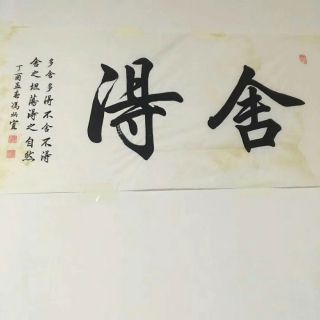 舍得
多舍多得不舍不得
舍之坦荡得之自然
丁酉孟春冯炳宣